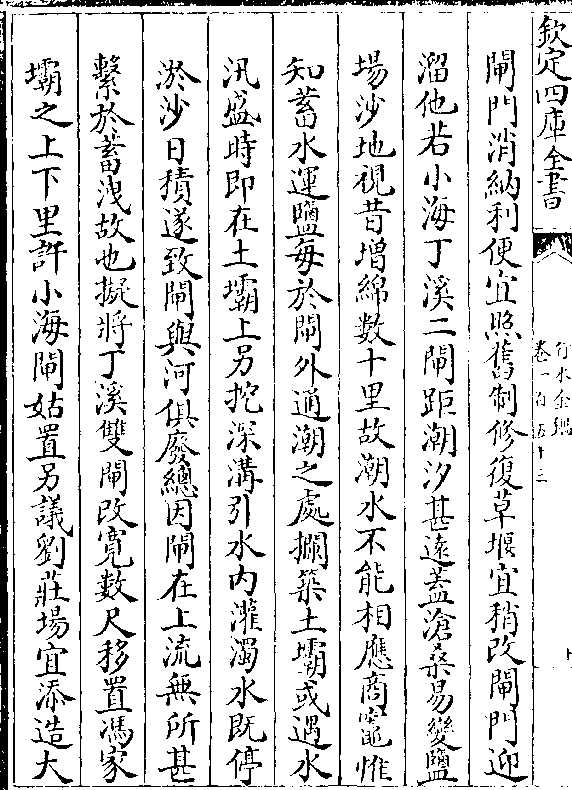 欽定四庫全書
行水金鑑
卷一百五十三
閘門消納利便宜照舊制修復草堰宜稍改閘門迎
溜他若小海丁溪二閘距潮汐甚遠蓋滄桑易變鹽
場沙地視昔增綿数十里故潮水不能相應商竈惟
知蓄水運鹽每於閘外通潮之處攔築土壩或遇水
汛盛時即在土壩上另挖深溝引水内灌濁水既停
淤沙日積遂致閘與河俱廢總因閘在上流無所甚
繫於蓄洩故也擬將丁溪雙閘改寬數尺移置馮家
壩之上下里許小海閘姑置另議劉莊場宜添造大